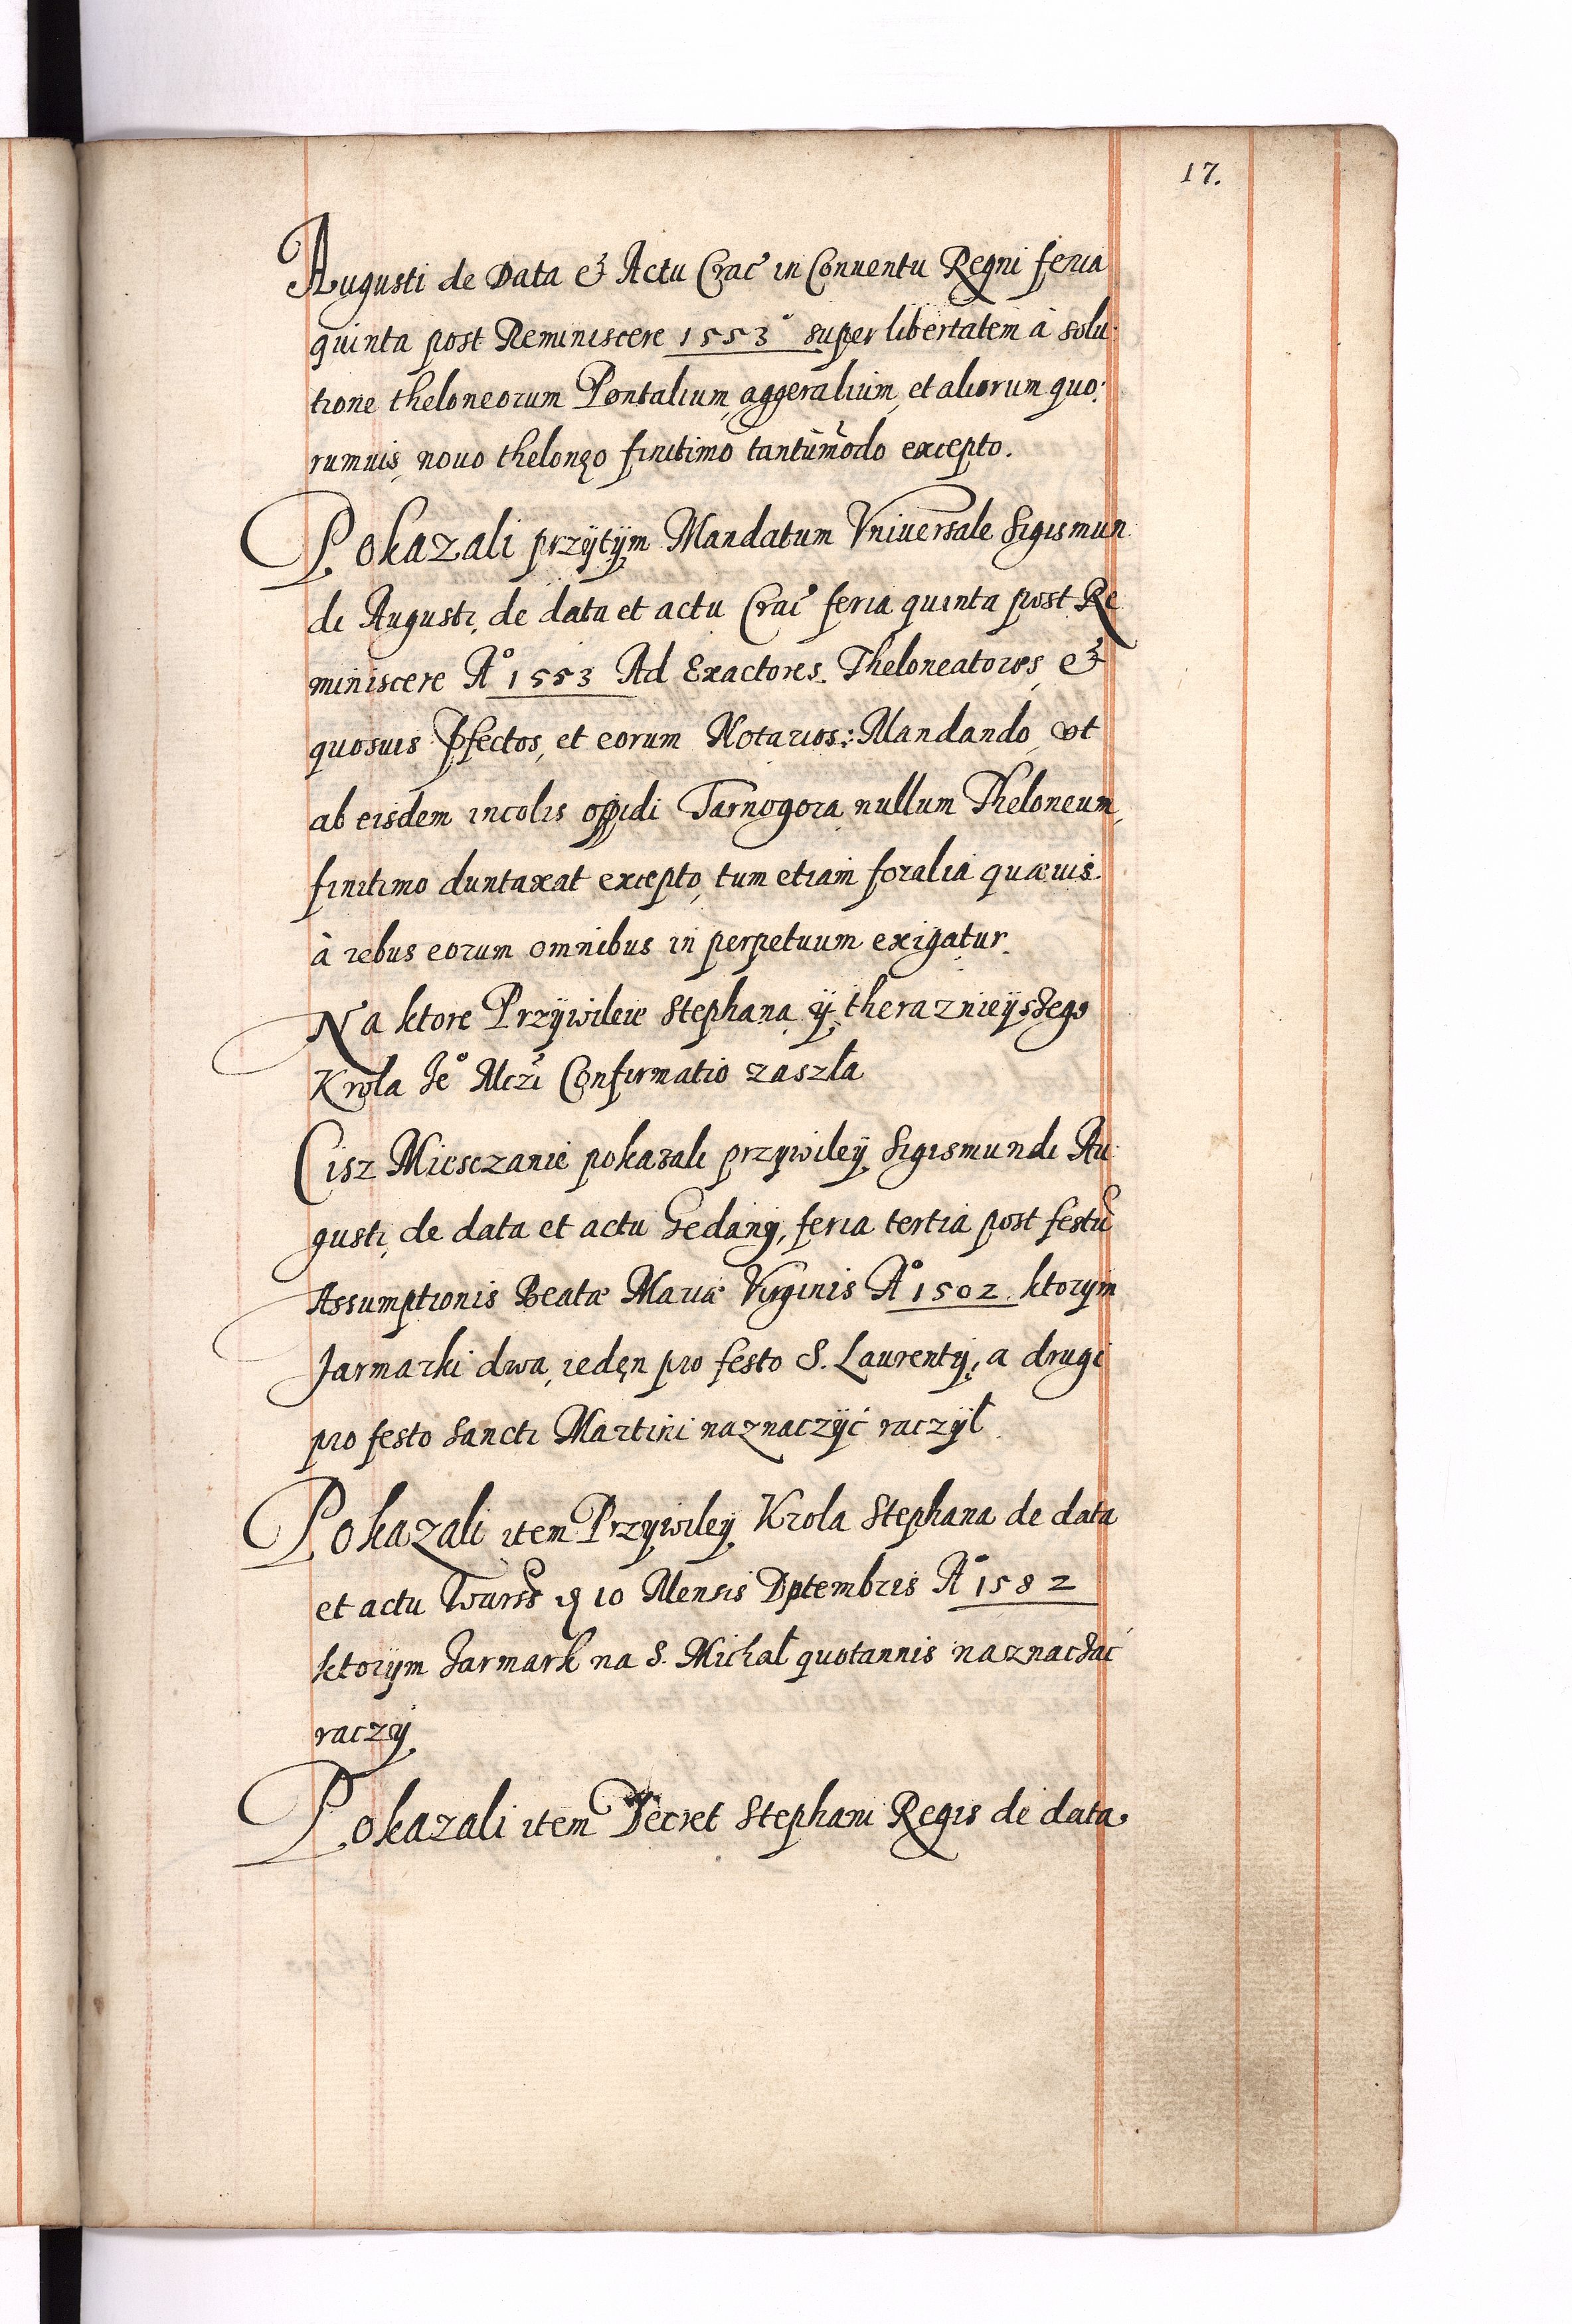 17.
Augusti de Data & Actu Crac̃ in Conuentu Regni feria
quinta post Reminiscere 1553° super libertatem à solu
tione theloneorum Pontalium, aggeralium, et aliorum quo:
rumuis, nouo thelonęo finitimo tantum̃odo excepto.
Pokazali przÿtÿm Mandatum Vniuersale Sigismun
di Augusti, de data et actu Crac̃ feria quinta post Re
miniscere A° 1553 Ad Exactores. Theloneatores, &
quosuis P̃fectos, et eorum Notarios: Mandando, vt
ab eisdem incolis oppidi Tarnogora nullum Theloneum,
finitimo duntaxat excepto, tum etiam foralia quæuis.
à rebus eorum omnibus in perpetuum exigatur.
Na ktore Przÿwileie Stephana ÿ theraznieÿszego
Krola Je° Mczi Confirmatio zaszła
Cisz Miesczanie pokazali przywileÿ Sigismundi Au
gusti, de data et actu Gedanÿ, feria tertia post festũ
Assumptionis Beatæ Mariæ Virginis A° 1502. ktorÿm
Jarmarki dwa, ieden pro festo S. Laurentÿ, a drugi
pro festo Sancti Martini naznaczÿć raczÿł
Pokazali item Przywileÿ Krola Stephana de data
et actu 10 Mensis A° 1582
ktorÿm Jarmark na S. Michał quotannis naznaczać
raczÿ
Pokazali item Decret Stephani Regis de data